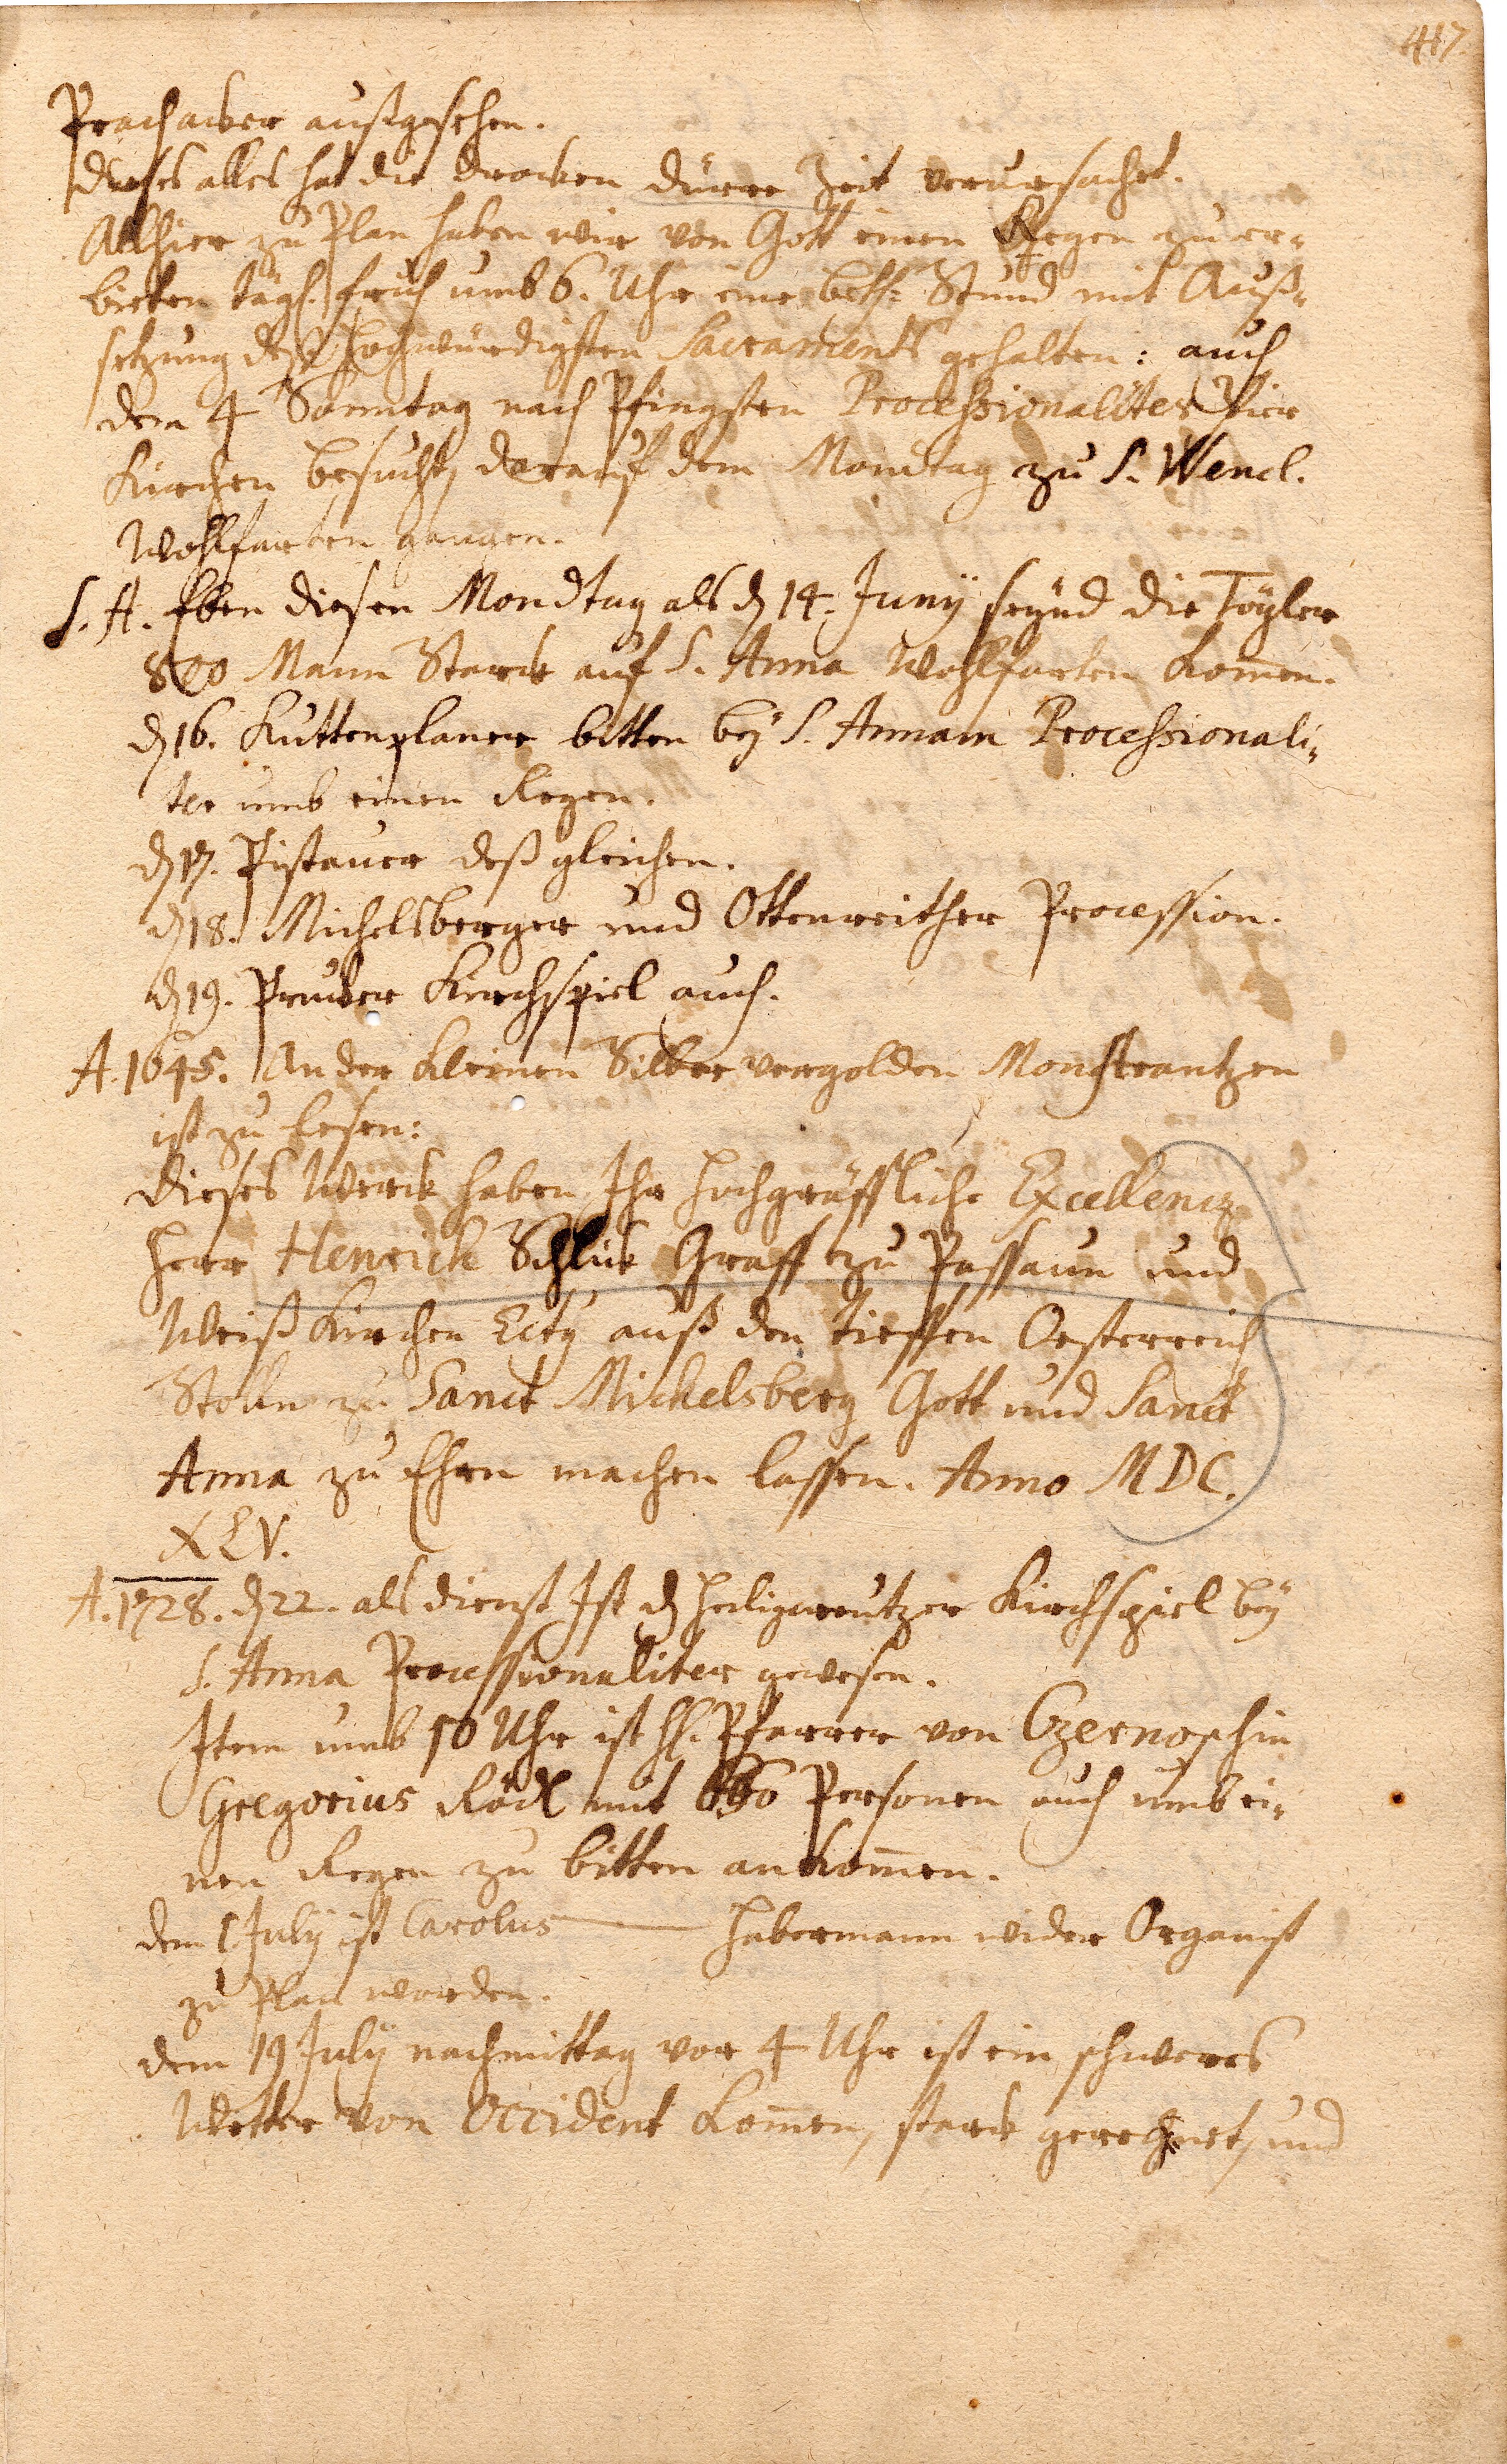 417
Prachacker außgesehen.
Dieses alles hat die drocken dürre Zeit verursachet.
Allhier zu Plan haben wir von Gott einen Regen zu er-
bitten tägl. fruh umb 6. Uhr eine beth: Stund mit Auß-
setzung deß Hochwürdigsten Sacraments gehalten: auch
dem 4 Sonntag nach Pfingsten Processionaliter vier
Kirchen besucht, darauf dem Mondtag zu S. Wencl.
Wohlfarten gangen.
S. A. Eben diesen Mondtag als d 14. Juny seynd die Töpler
800 Mann Starck auf S. Anna Wohlfarten kom̄en.
d 16. Kuttenplaner bitten bey S. Annam Processionali-
ter umb einen Regen.
d 17. Pistauer deßgleichen.
d 18. Michelsberger und Ottenreither Procession.
d 19. Prucker Kirchspiel auch.
A. 1645. An der kleinen Silber vergolden Monstrantzen
ist zu lesen:
Dieses Werck haben Ihr Hochgräffliche Excellencz
Herr Henrich Schlick Graff zu Passaun und
Weiß Kirchen Ectz auß den tieffen Oesterreich
Stolln zu Sanct Michelsberg Gott und Sanct
Anna zu Ehren machen lassen. Anno MDC.
XLV.
A. 1728. d 22. als dienst. Ist d Heiligcreutzer Kirchspiel bey
S. Anna Processionaliter gewesen.
Item umb 10 Uhr ist H. Pfarrer von Czernoschin
Gregorius Rödl mit Personen auch umb ei-
nen Regen zu bitten ankom̄en.
dem 1 July ist Carolus Habermann wider Organist
zu Plan worden.
dem 19 July nachmittag vor 4 Uhr ist ein schweres
Wetter von Occident kom̄en, starck geregnet, und